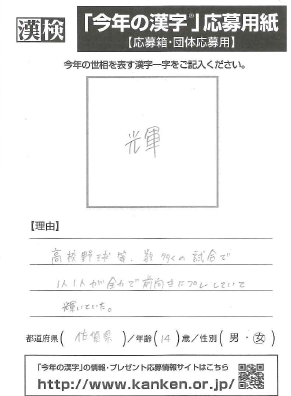 漢検
「今年の漢字®」応募用紙
【応募箱・団体応募用】
今年の世相を表す漢字一字をご記入ください。
輝
【理由】
高校野球等、数多くの試合で
1人1人が全力で前向きにプレーしていて
輝いていた。
都道府県( 佐賀県 )/年齢( 14 )歳/性別( 男・女 )
「今年の漢字」の情報・プレゼント応募情報サイトはこちら
http://www.kanken.or.jp/